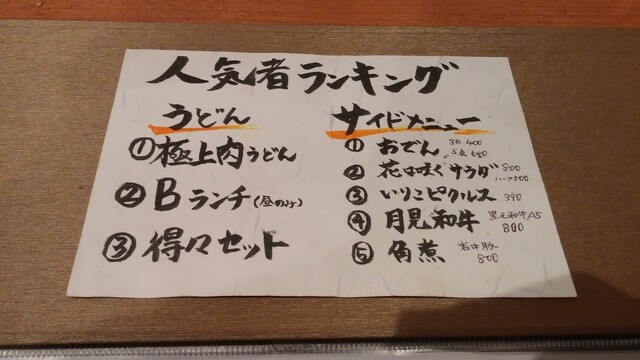 人気者ランキング
うどん
①極上肉うどん
②Bランチ(昼のみ)
③得々セット
サイドメニュー
①おでん 3点400
5点680
②花は咲くサラダ 800
ハーフ500
③いりこピクルス 390
④月見和牛 黒毛和牛A5
800
⑤角煮 岩中豚
800